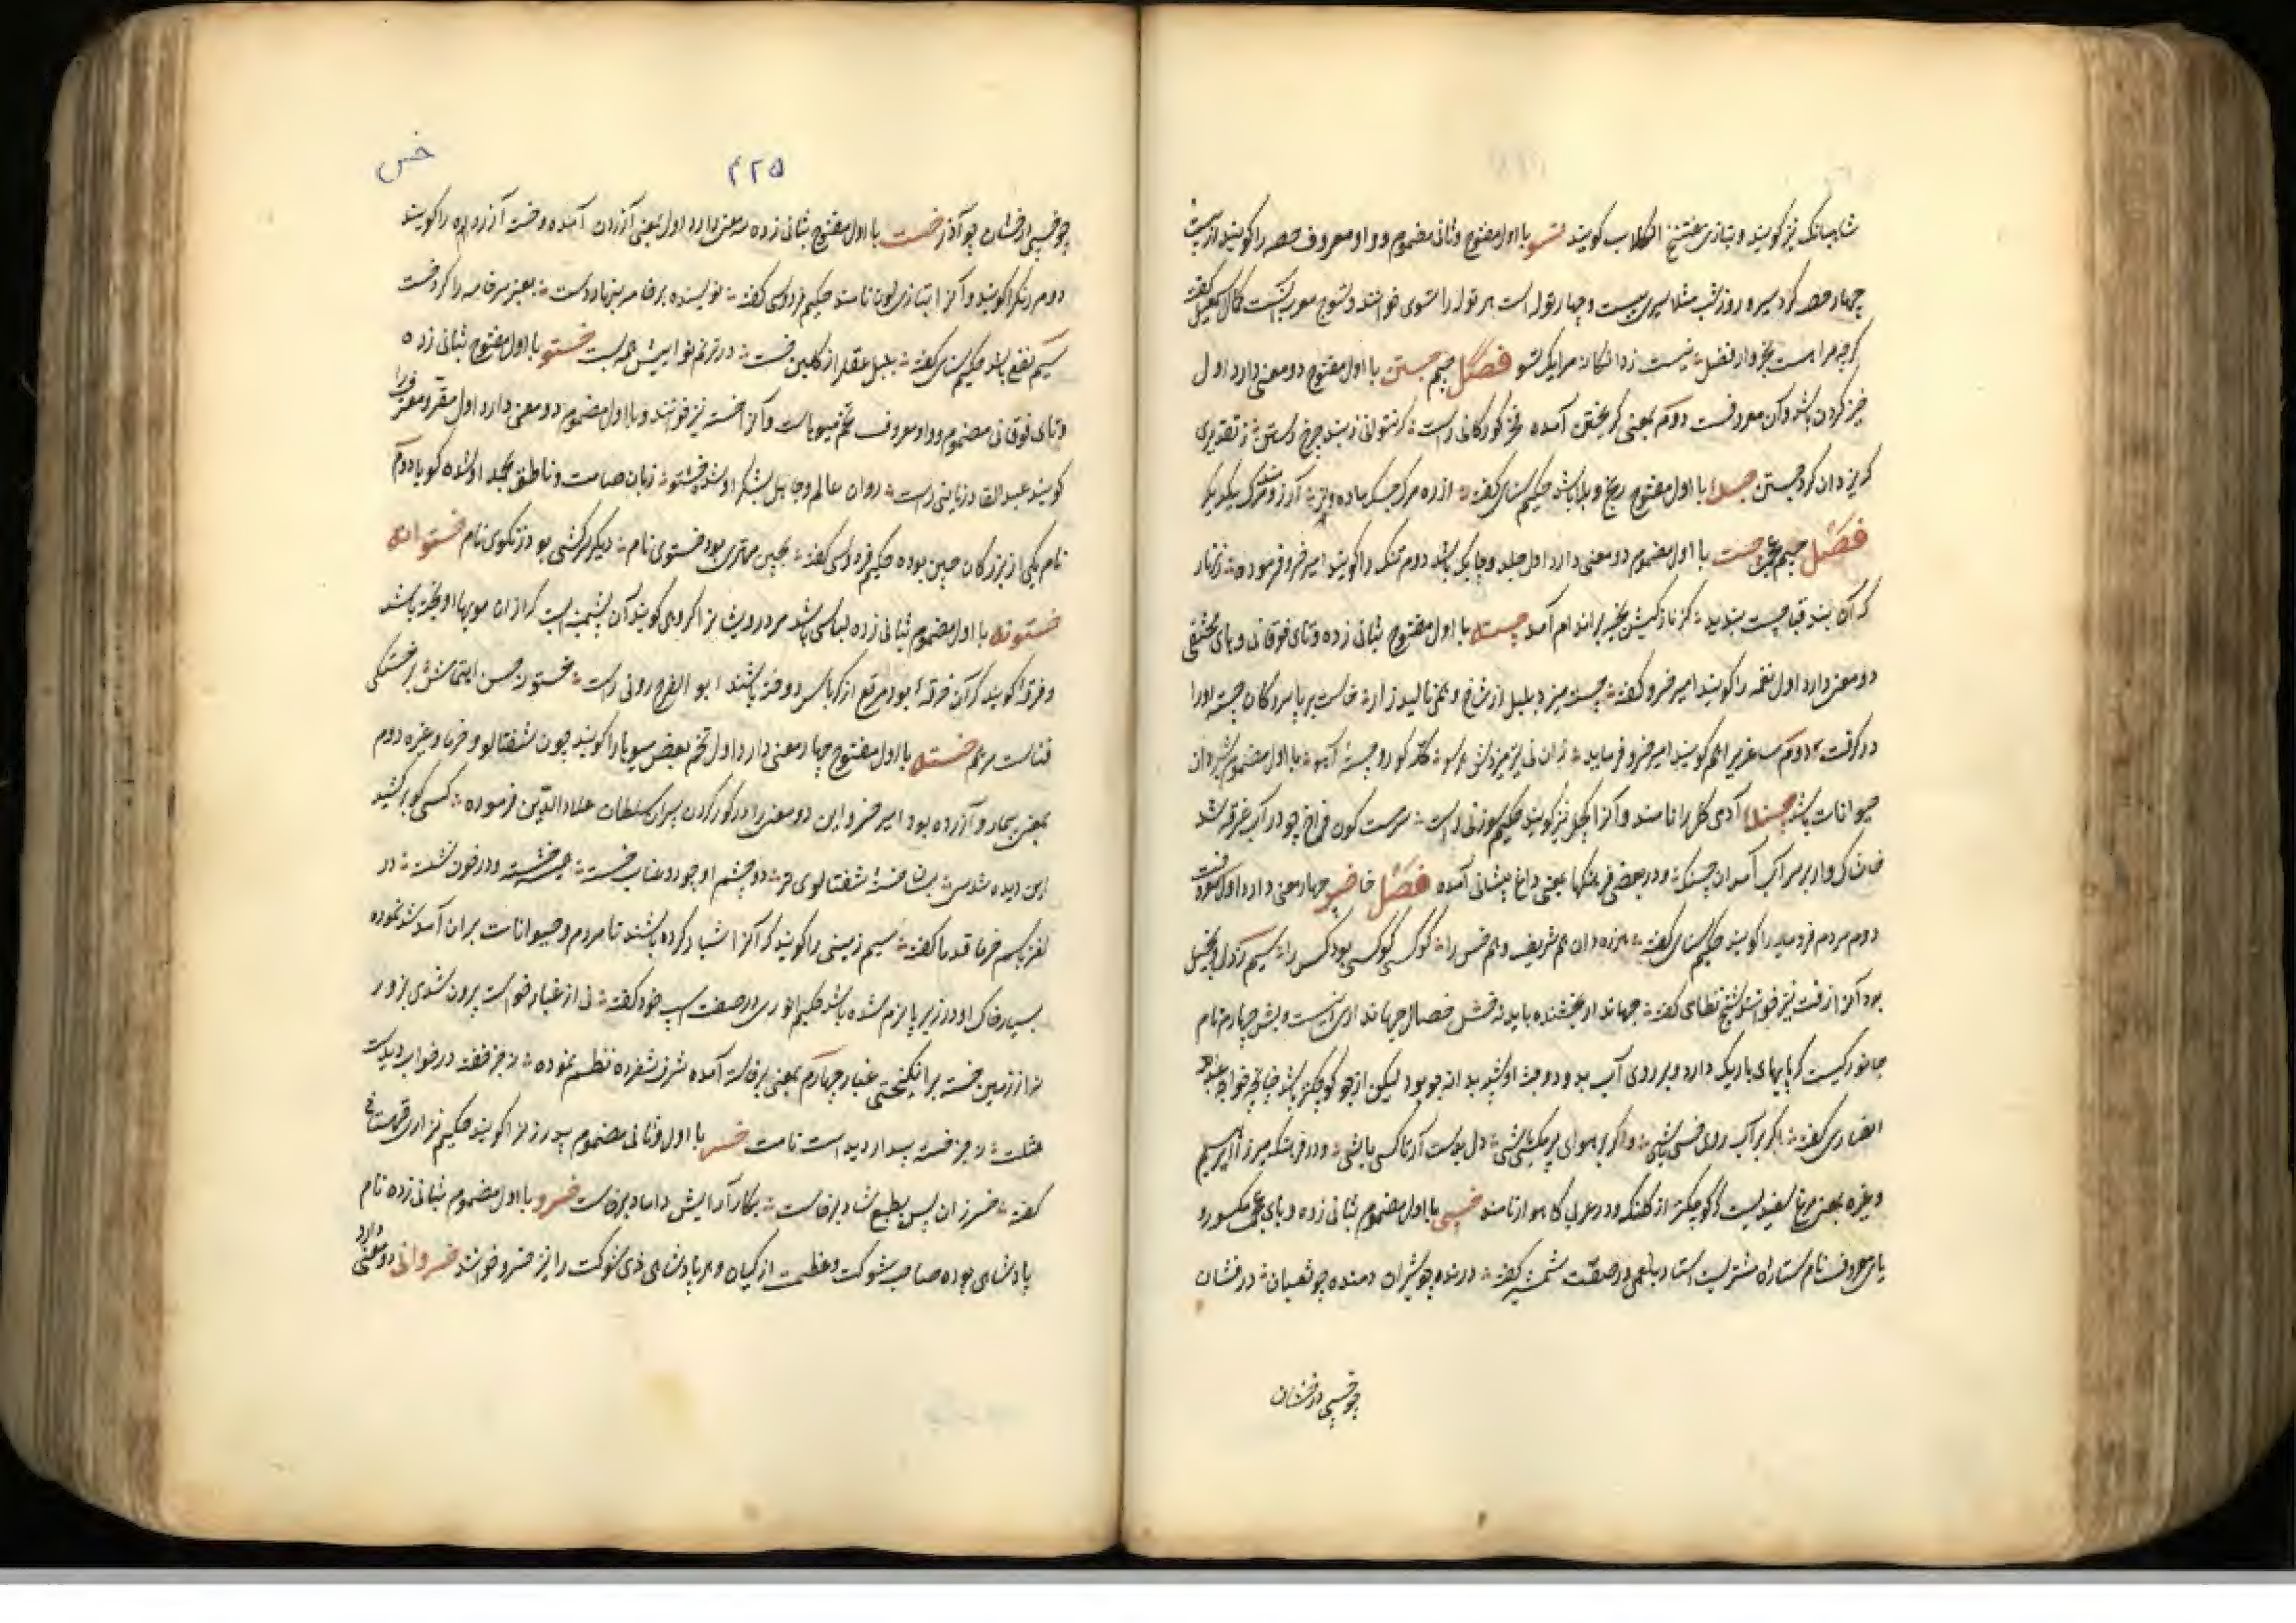 شاهبانک نیز گویند و بتازی عنب الکلاب گویند تسو با اول مفتوح و ثانی مضموم و واو معروف حصه را گویند از بیست
چهار حصه کز سیر و روز و شب مثلا سیری بیست و چهار توله است هر توله را تسوی خوانند و تسوج معرب آنست کمال اسمعیل گفته
گرچه مرا هست بخروار فضل نیست ز دانگانه مرا یک تسو فصل جیم جستن با اول مفتوح دو معنی دارد اول
خیز کردن باشد و آن معروفست دوم بمعنی گریختن آمده فخر گورگانی راست که نتوانی ز بند چرخ رستن ز تقدیری
که یزدان کرد جستن جسک با اول مفتوح رنج و بلا باشد حکیم سنائی گفته از ره مرگ جسک ماده و نر آرزومند مرگ یکدیگر
فصل جیم عجمی چست با اول مضموم دو معنی دارد اول جلد و چابک باشد دوم تنگ را گویند امیر خسرو فرموده زنهار
که آن بند قبا چست ببندید کز نازکیش بخیه بر اندام آمد چسته با اول مفتوح بثانی زده و تای فوقانی و های مختفی
دو معنی دارد اول نغمه را گویند امیر خسرو گفته چسته میزد بلبل از شاخ و همی نالید زار خاست بر پا سرو کان چسته او را
در گرفت دوم ساغری را هم گویند امیر خسرو فرماید با اول مضموم شیردان
حیوانات باشد چسنک آدمی کل را نامند و آنرا کچل نیز گویند حکیم سوزنی راست سرست کون فراخ چو در آب غرقه شد
خاشاک وار بر سر آب آمد آن چسنک و در بعضی فرهنگها بمعنی داغ پیشانی آمده فصل خا خس چهار معنی دارد اول معروفست
دوم مردم فرومایه را گویند حکیم سنائی گفته هم شریف و هم خس را سیم رذل و بخیل
بود آنرا زفت نیز خوانند شیخ نظامی گفته جهاندار بخشنده باید نه خس خصال جهانداری نیست و بس چهارم نام
جانورکیست که پایهای باریک دارد و بر روی آب بدود و جثه او شبیه بدانه جو بود لیکن از جو کوچکتر باشد چنانچه خواجه عبدالله
انصاری گفته اگر بر آب روی خسی باشی و اگر بر هوای پری مگسی باشی دل بدست آر تا کسی باشی و در فرهنگ میرزا ابراهیم
و غیره بمعنی مرغ سفیدیست کوچکتر از کلنک و در عربی کاهو را نامند خسپی با اول مضموم بثانی زده و بای عجمی مکسور و
یای معروف نام ستاره مشتریست استاد بلعمی در صفت شمشیر گفته درنده چو شیران دمنده چو ثعبان درفشان
چو خسپی درخشان
۴۲۵
خس
چو خسپی درخشان چو آذر خست با اول مفتوح بثانی زده سه معنی دارد اول بمعنی آزردن آمده و خسته آزرده را گویند
دوم رنگ را گویند و آنرا بتازی لون نامند حکیم فردوسی گفته نویسنده بر خامه بنهاد دست بعنبر سر خامه را کرد خست
سیم نفع باشد حکیم سنائی گفته بلبل عقل از گلبن خست در ترنم نوا بیش همه بست خستو با اول مفتوح بثانی زده
و تای فوقانی مضموم و واو معروف تخم میوهاست و آنرا خسته نیز خوانند و با اول مضموم دو معنی دارد اول مقر و معترف را
گویند عبدالقادر نایینی راست روان عالم و جاهل بشکر او شده خستو زبان صامت و ناطق بحمد او شده گویا دوم
نام یکی از بزرگان چین بوده حکیم فردوسی گفته بچین مهتری بود خستوی نام دیگر سرکشی بود زنگوی نام خستوانه
خستونه با اول مضموم بثانی زده لباسی باشد مر درویشانرا که وی گویند آن پشمینه‌ایست که از ان مویها آویخته باشد
و فرقه گویند که آن خرقه بود مرقع از کرباس دوخته باشند ابوالفرج رونی راست خستونه حسن اهتمامش بر خستگی
فناست مرهم خسته با اول مفتوح چهار معنی دارد اول تخم بعضی میوها را گویند چون شفتالو و خرما و غیره دوم
بمعنی بیمار و آزرده بود امیر خسرو این دو معنی را در کور کردن پسران سلطان علاءالدین فرموده کسی کو برکشید
این دیده شد مس بسان خسته شفتالوی تر دو چشم او چو دو عناب خسته همی خسته و در خون نشسته در
لغز باسم خرما قدما گفته سیم زمینی را گویند که آنرا شیار کرده باشند تا مردم و حیوانات بران آمد شد نموده
بسیار خاک او در زیر پا نرم شده باشد حکیم انوری در صفت اسپ خود گفته نی از غبار خاسته بیرون شدی بزور
نی از زمین خسته برانگیختی غبار چهارم بمعنی برخاسته آمده شرف شفروه نظم نموده نه جز خفته در خواب دیدست
مثلت نه جز خسته بیدار دیدست نامت خسر با اول و ثانی مضموم پدر زنرا گویند حکیم نزاری قهستانی
گفته خسر زان پس بطبع شاد برخاست بکار آرایش داماد برخاست خسرو با اول مضموم بثانی زده نام
پادشاهی بوده صاحب شوکت و عظمت از کیان و هر پادشاهی ذی شوکت را نیز خسرو خوانند خسروانی دو معنی دارد